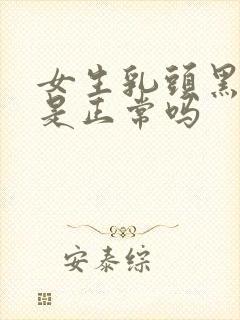 女生乳頭黑
是正常吗
安泰综